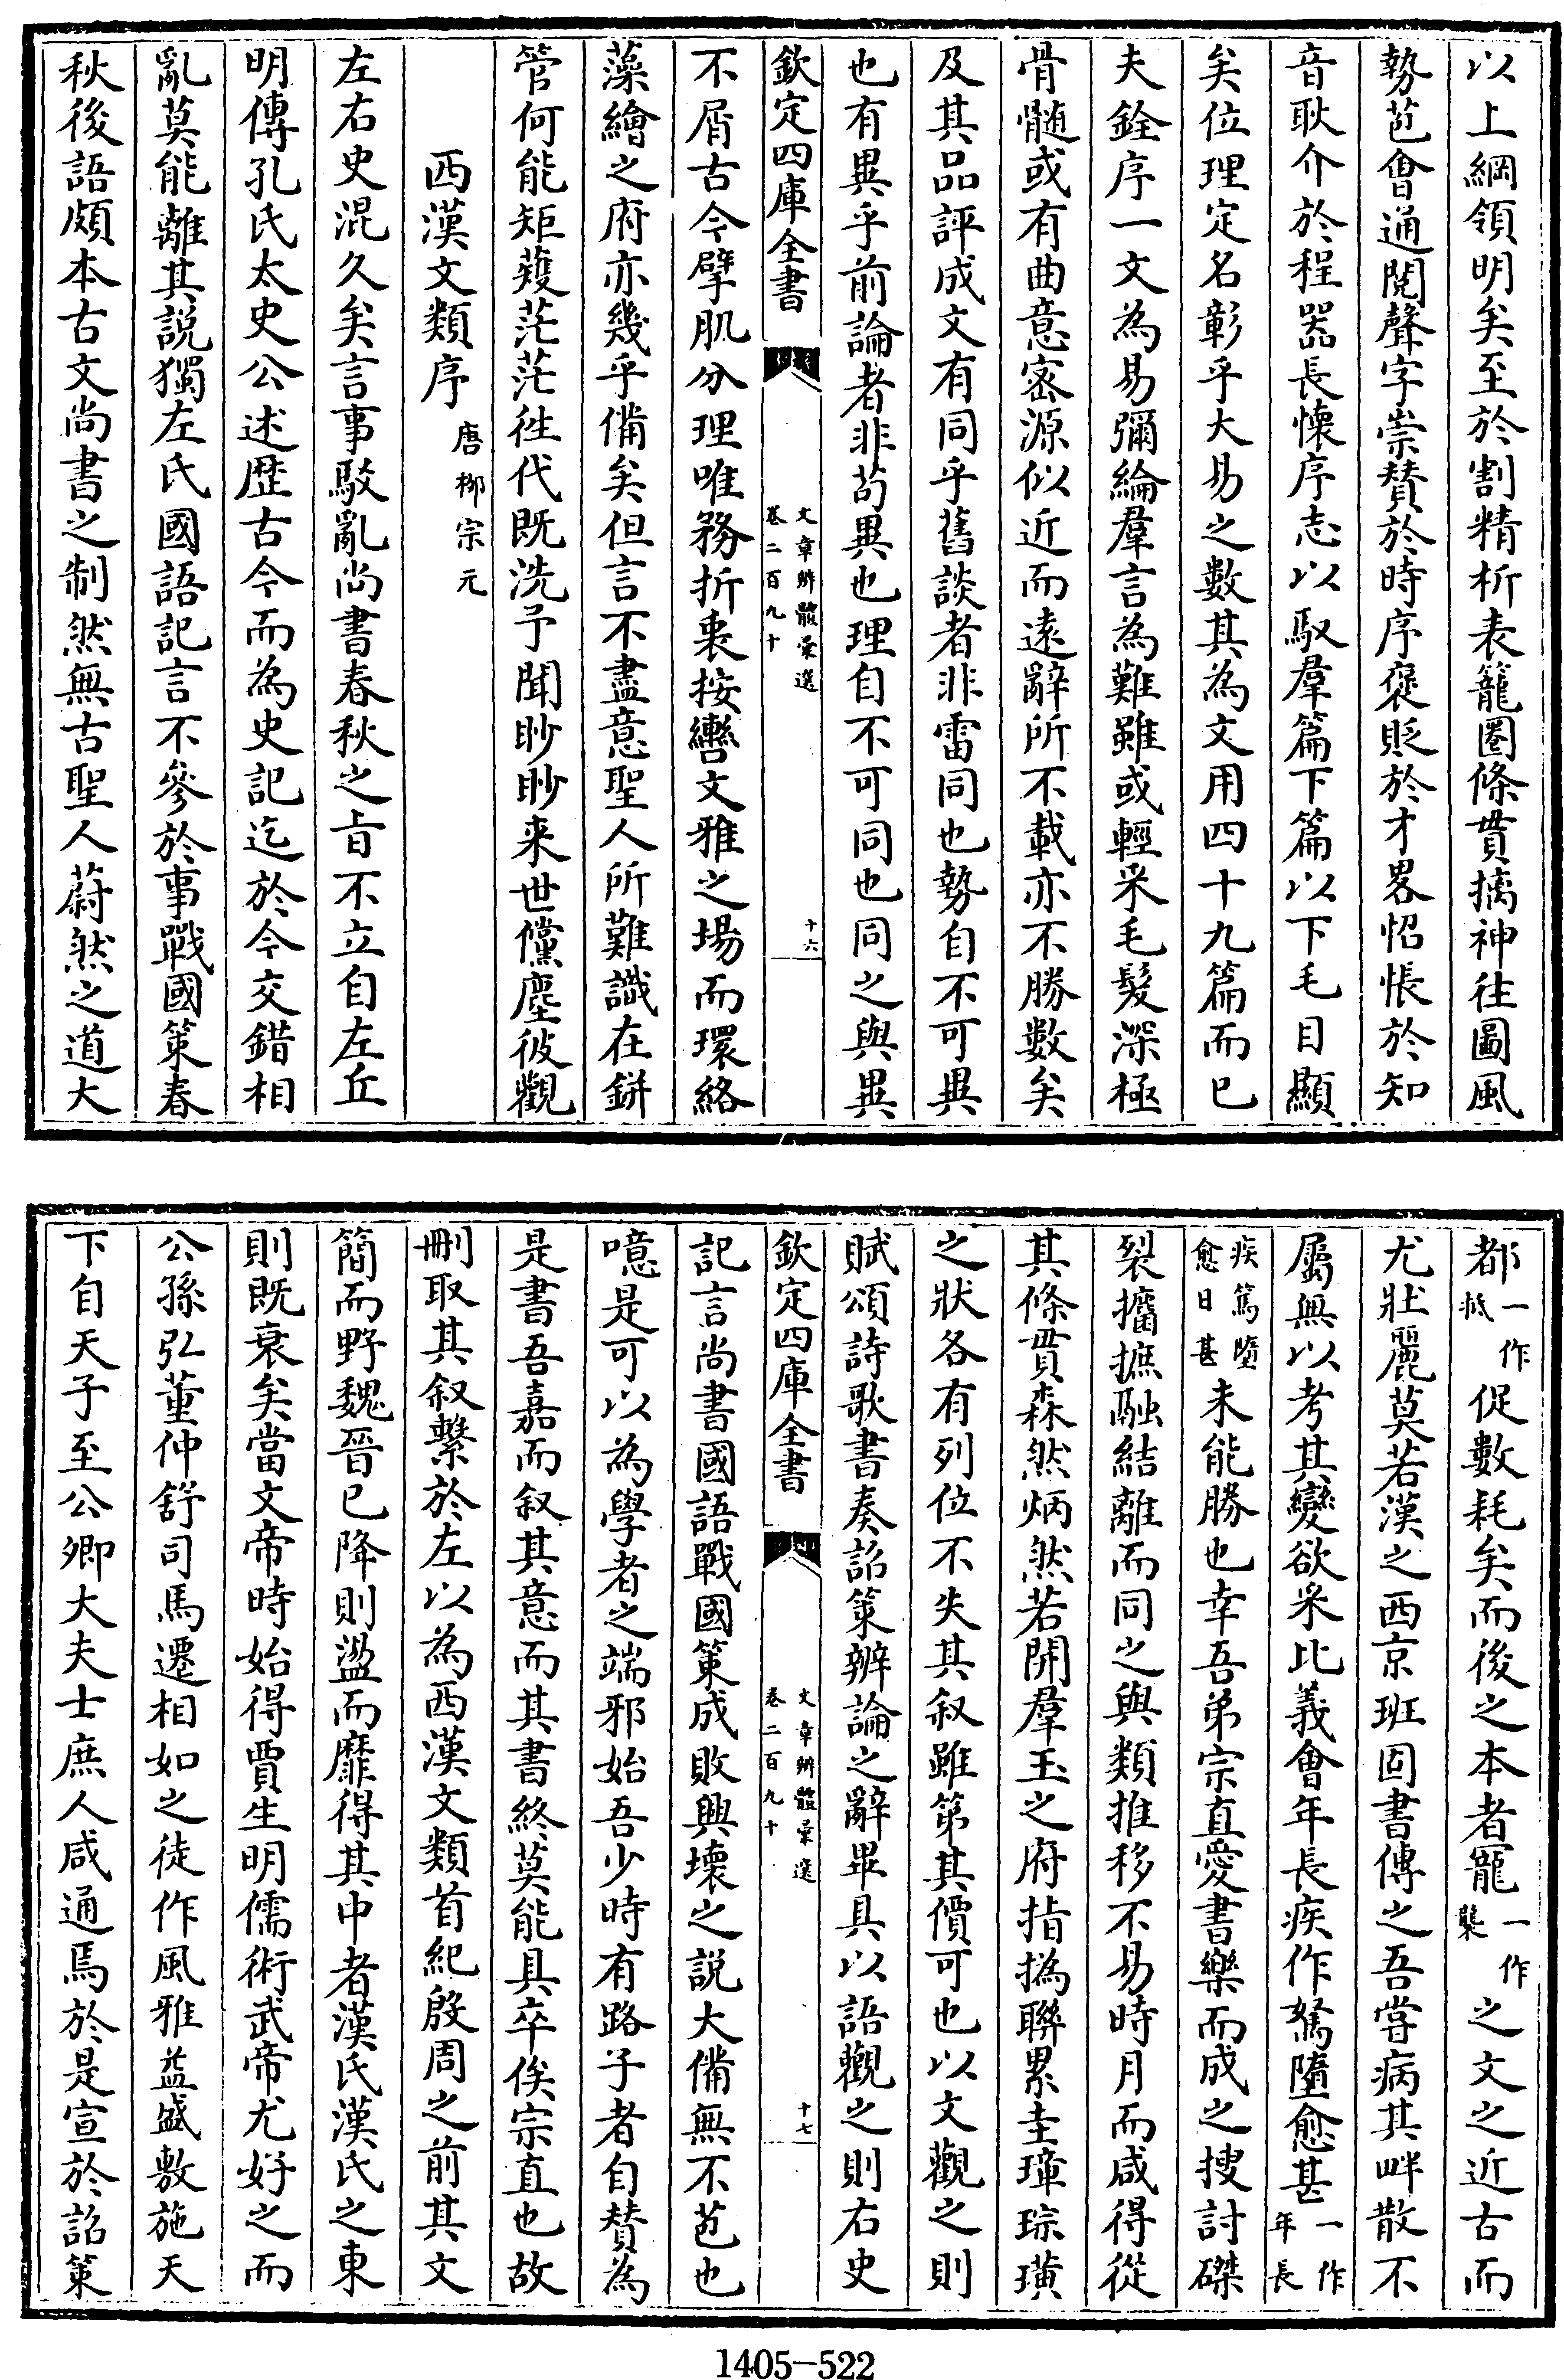 以上綱領明矣至於割精析表籠圏條貫摛神往圖風
勢苞會通閲聲字崇賛於時序褒貶於才畧怊悵於知
音耿介於程器長懐序志以馭羣篇下篇以下毛目顯
矣位理定名彰乎大易之數其為文用四十九篇而已
夫銓序一文為易彌綸羣言為難雖或輕采毛髮深極
骨髄或有曲意宻源似近而逺辭所不載亦不勝數矣
及其品評成文有同乎舊談者非雷同也勢自不可異
也有異乎前論者非苟異也理自不可同也同之與異
欽定四庫全書
文章辨體彙選
卷二百九十
十六
不屑古今擘肌分理唯務折衷按轡文雅之場而環絡
藻繪之府亦幾乎備矣但言不盡意聖人所難識在缾
管何能矩矱茫茫徃代既洗予聞眇眇来世儻塵彼觀
西漢文類序 唐柳宗元
左右史混久矣言事駁亂尚書春秋之㫖不立自左丘
明傳孔氏太史公述歴古今而為史記迄於今交錯相
亂莫能離其説獨左氏國語記言不參於事戰國策春
秋後語頗本古文尚書之制然無古聖人蔚然之道大
都一作抵促數耗矣而後之本者寵一作襲之文之近古而
尤壯麗莫若漢之西京班固書傳之吾嘗病其畔散不
屬無以考其變欲采比義會年長疾作駑墮愈甚一作年長
疾篤墮愈日甚未能勝也幸吾弟宗直愛書樂而成之搜討磔
裂攟摭融結離而同之與類推移不易時月而咸得從
其條貫森然炳然若開羣玉之府指撝聯累圭璋琮璜
之狀各有列位不失其叙雖第其價可也以文觀之則
賦頌詩歌書奏詔策辨論之辭畢具以語觀之則右史
欽定四庫全書
文章辨體彙選
卷二百九十
十七
記言尚書國語戰國策成敗興壊之説大備無不苞也
噫是可以為學者之端邪始吾少時有路子者自賛為
是書吾嘉而叙其意而其書終莫能具卒俟宗直也故
刪取其叙繫於左以為西漢文類首紀殷周之前其文
簡而野魏晉已降則盪而靡得其中者漢氏漢氏之東
則既衰矣當文帝時始得賈生明儒術武帝尤好之而
公孫弘董仲舒司馬遷相如之徒作風雅益盛敷施天
下自天子至公卿大夫士庶人咸通焉於是宣於詔策
1405-522